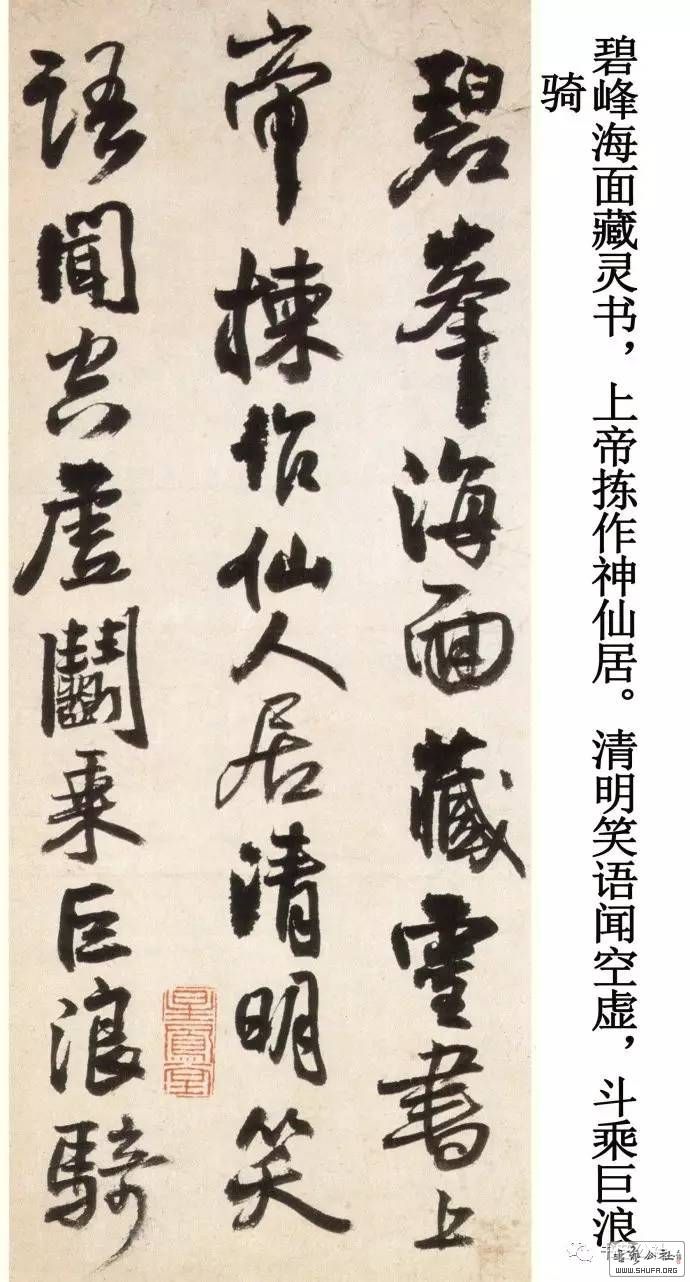 碧峰海面藏灵书，上帝拣作神仙居。清明笑语闻空虚，斗乘巨浪
骑
碧峯海面藏靈書上
帝揀作仙人居清明笑
語聞空虛鬭乘巨浪騎
WWW.SHUFA.ORG